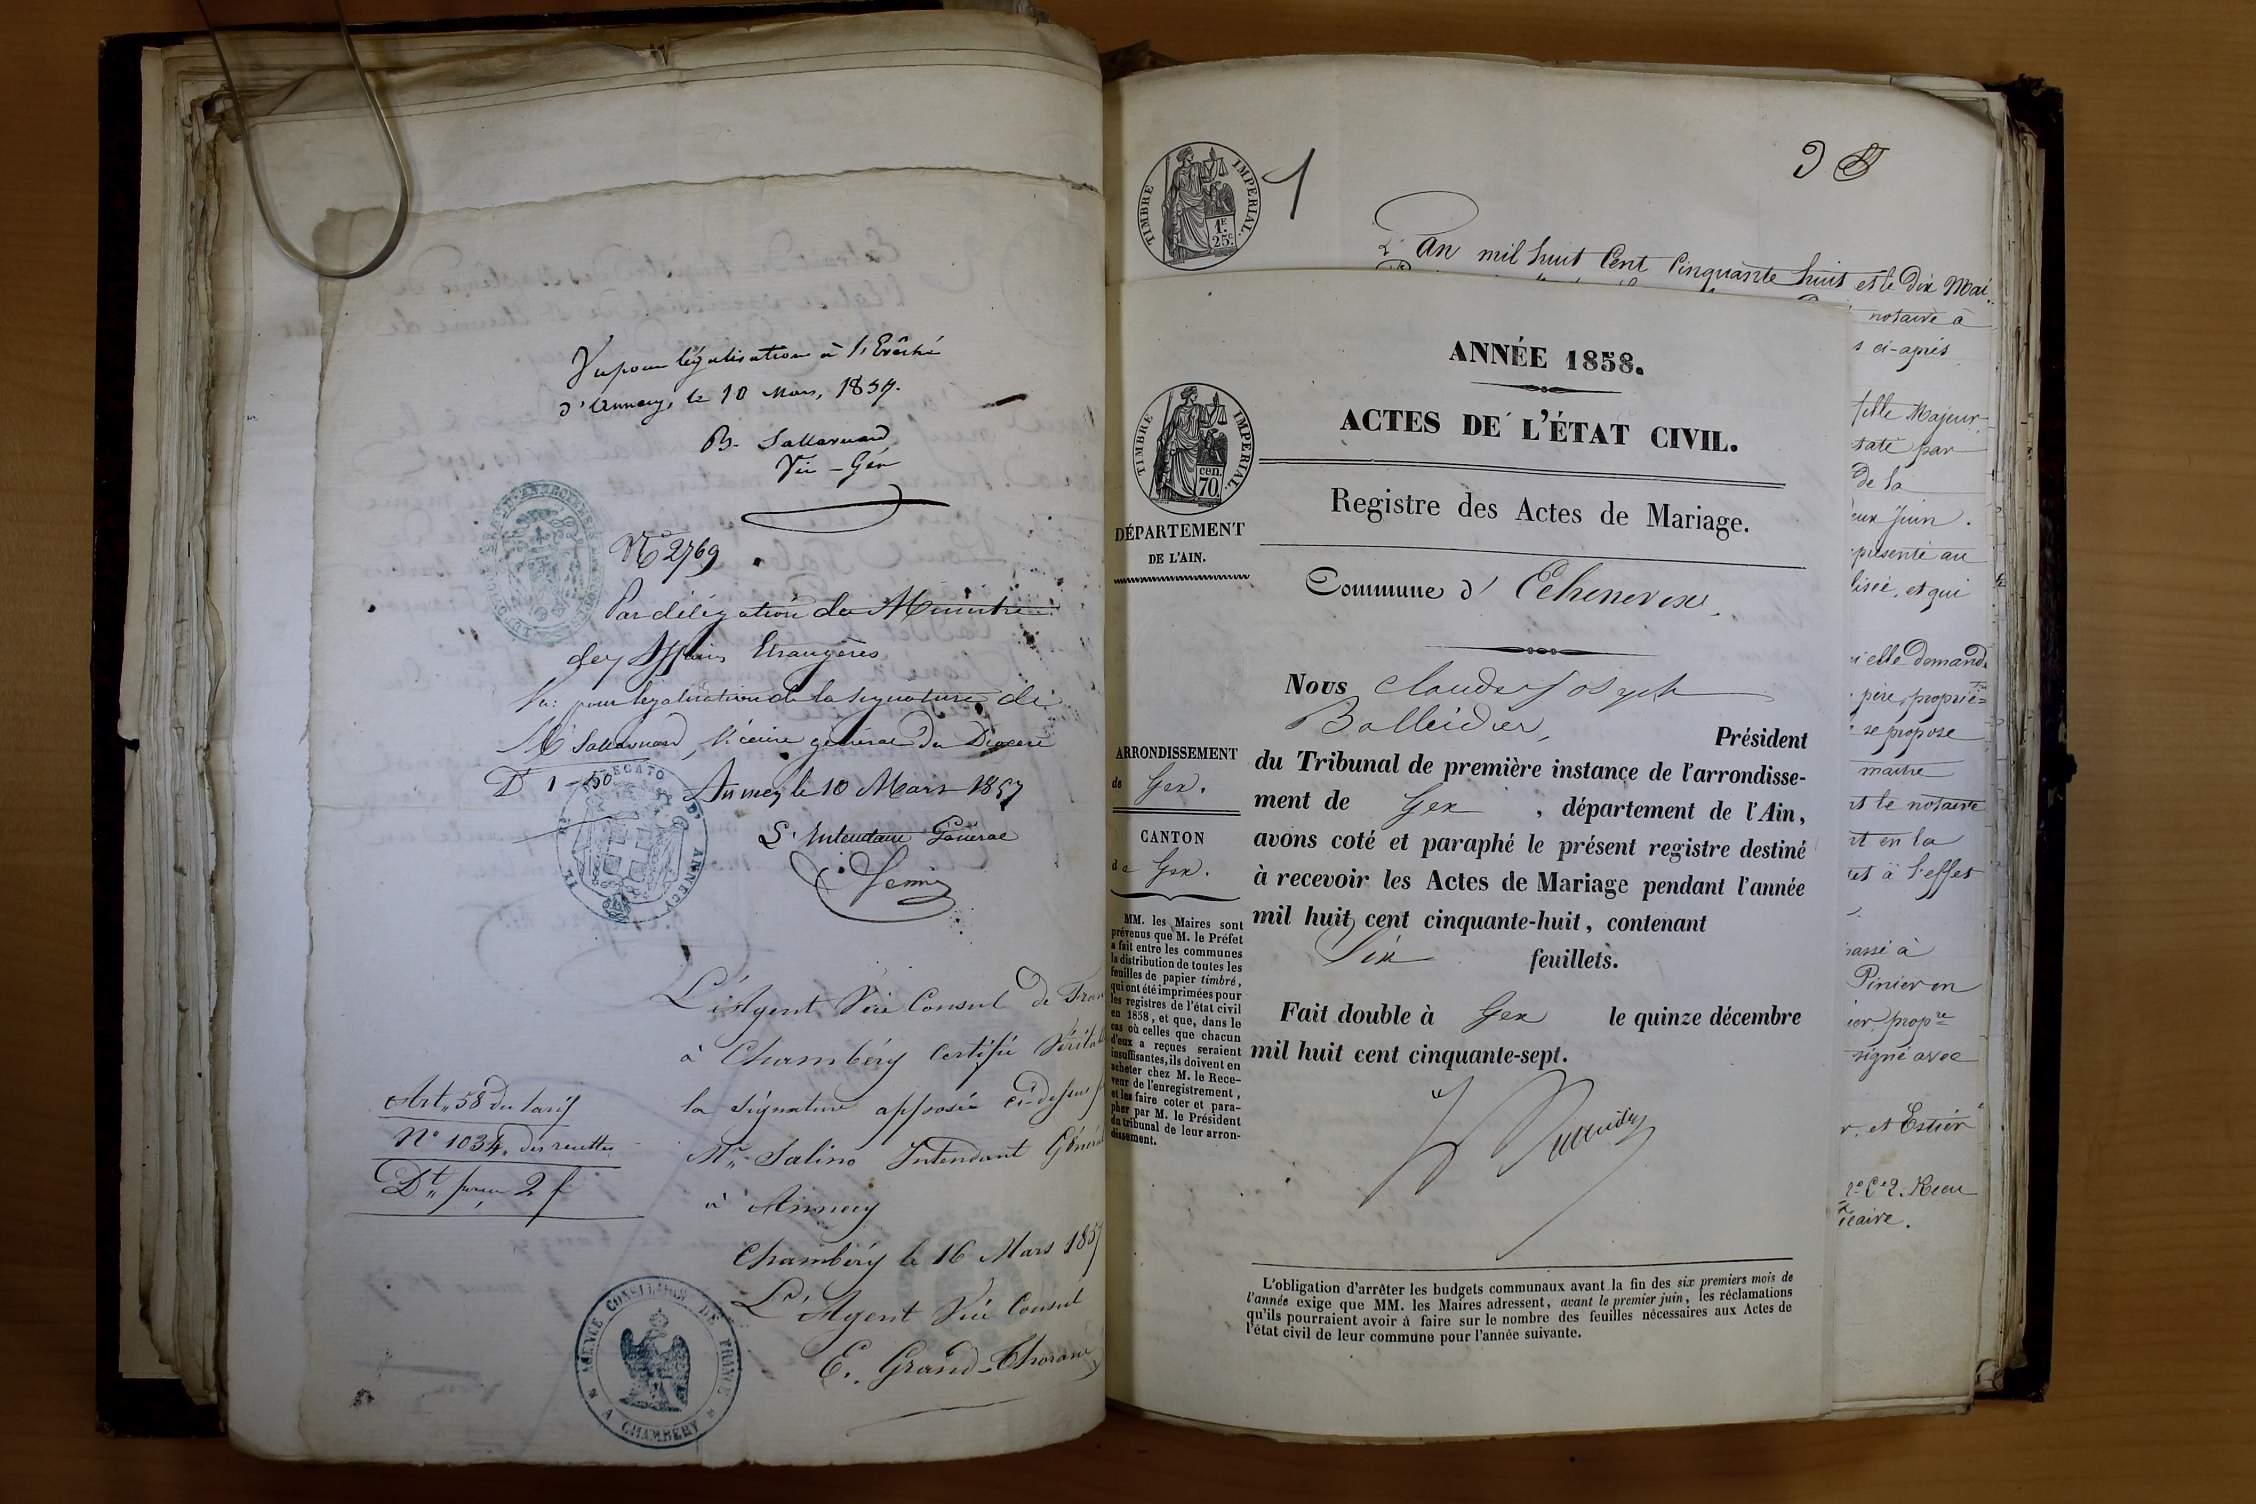 Vu pour légalisation à l'Evêché
d'Annecy, le 10 Mars, 1857.
B. Sallavuard
Vic-Gén
N° 2769
Par délégation du Ministre
des Affaires Etrangères
Vu: pour légalisation de la signature de
Mr Sallavuard, Vicaire général du Diocèse
Dt 1-50
Annecy le 10 Mars 1857
L'Intendant Général
L'Agent Vice Consul de Fran
à Chambéry certifie Vérita
la signature apposée ci-dessus
Mr. Salino Intendant Général
à Annecy
Chambéry le 16 Mars 185
L'Agent Vice Consul
E. Grand-Thorane
Art. 58 du tarif
N° 1034, des recettes
Dt perçu 2 f
AGENCE CONSULAIRE DE FRANCE
A CHAMBERY
TIMBRE IMPERIAL
1F. 25c.
1
L'an mil huit Cent Cinquante huit et le dix Mai
notaire à
s ci-après
fille Majeur
taté par
de la
eux Juin.
présenté au
lisée, et qui
elle demand
père, propriè=
se propose
maitre
et le notaire
nt en la
et à l'effet
passé à
Pinier en
ier, propre
signé avec
r, et Estier
caire.
ANNÉE 1858.
ACTES DE L'ÉTAT CIVIL.
TIMBRE IMPERIAL.
cen. 70
DÉPARTEMENT
DE L'AIN.
Registre des Actes de Mariage.
Commune d' Echenevex
ARRONDISSEMENT
de Gex.
CANTON
de Gex.
MM. les Maires sont
prévenus que M. le Préfet
a fait entre les communes
la distribution de toutes les
feuilles de papier timbré,
qui ont été imprimées pour
les registres de l'état civil
en 1858, et que, dans le
cas où celles que chacun
d'eux a reçues seraient
insuffisantes, ils doivent en
acheter chez M. le Rece-
veur de l'enregistrement,
et les faire coter et para-
pher par M. le Président
du tribunal de leur arron-
dissement.
Nous Claude Joseph
Balleidier, Président
du Tribunal de première instance de l'arrondisse-
ment de Gex , département de l'Ain,
avons coté et paraphé le présent registre destiné
à recevoir les Actes de Mariage pendant l'année
mil huit cent cinquante-huit, contenant
Six feuillets.
Fait double à Gex le quinze décembre
mil huit cent cinquante-sept.
L'obligation d'arrêter les budgets communaux avant la fin des six premiers mois de
l'année exige que MM. les Maires adressent, avant le premier juin, les réclamations
qu'ils pourraient avoir à faire sur le nombre des feuilles nécessaires aux Actes de
l'état civil de leur commune pour l'année suivante.